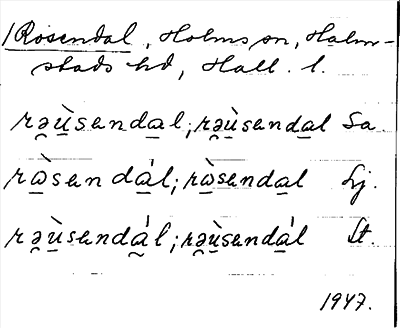 Rosendal, Holms sn, Halm-
stads hd, Hall. l.
rə̯ù̱senda̱l; rə̯ù̱senda̱l Sa
rὼ̱sendá̱l; rὼ̱senda̱l Lj.
rə̯ù̱sendá̱l; rə̯ù̱sendá̱l Lt.
1947.